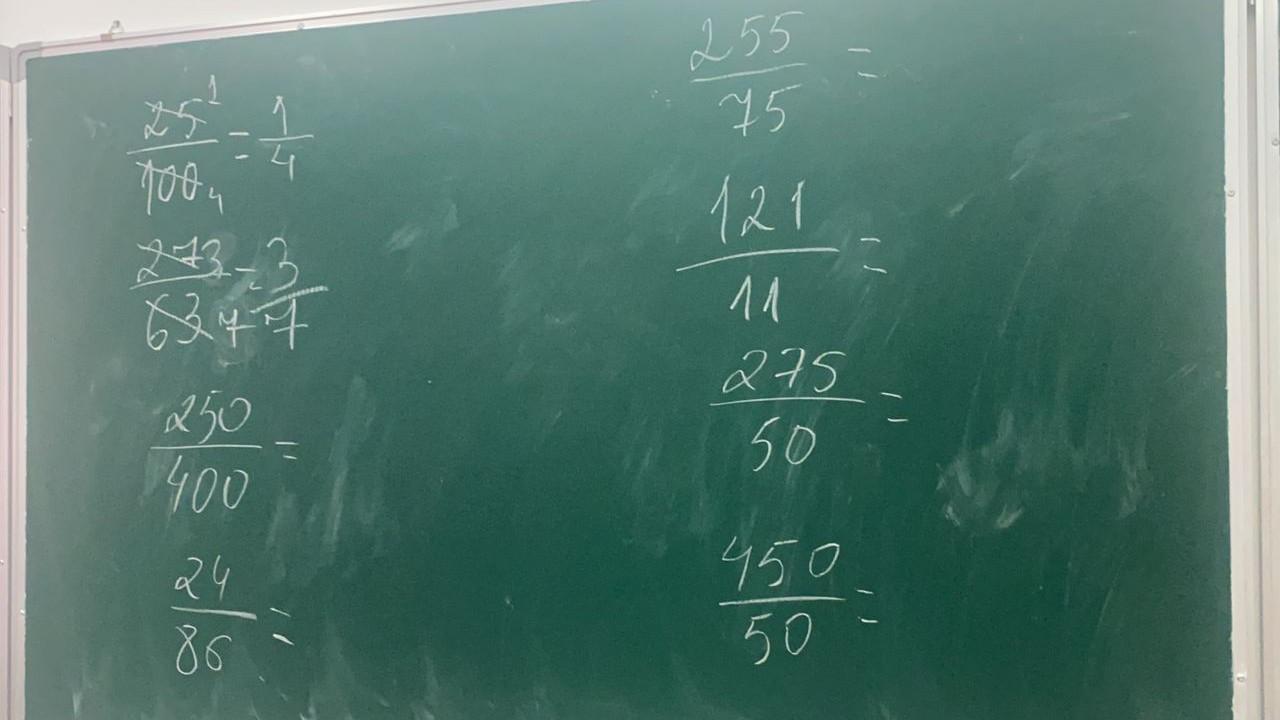 25 1
— = 1/4
100 4
27 3
— = 3/7
63 7
250
— =
400
24
— =
86
255
— =
75
121
— =
11
275
— =
50
450
— =
50